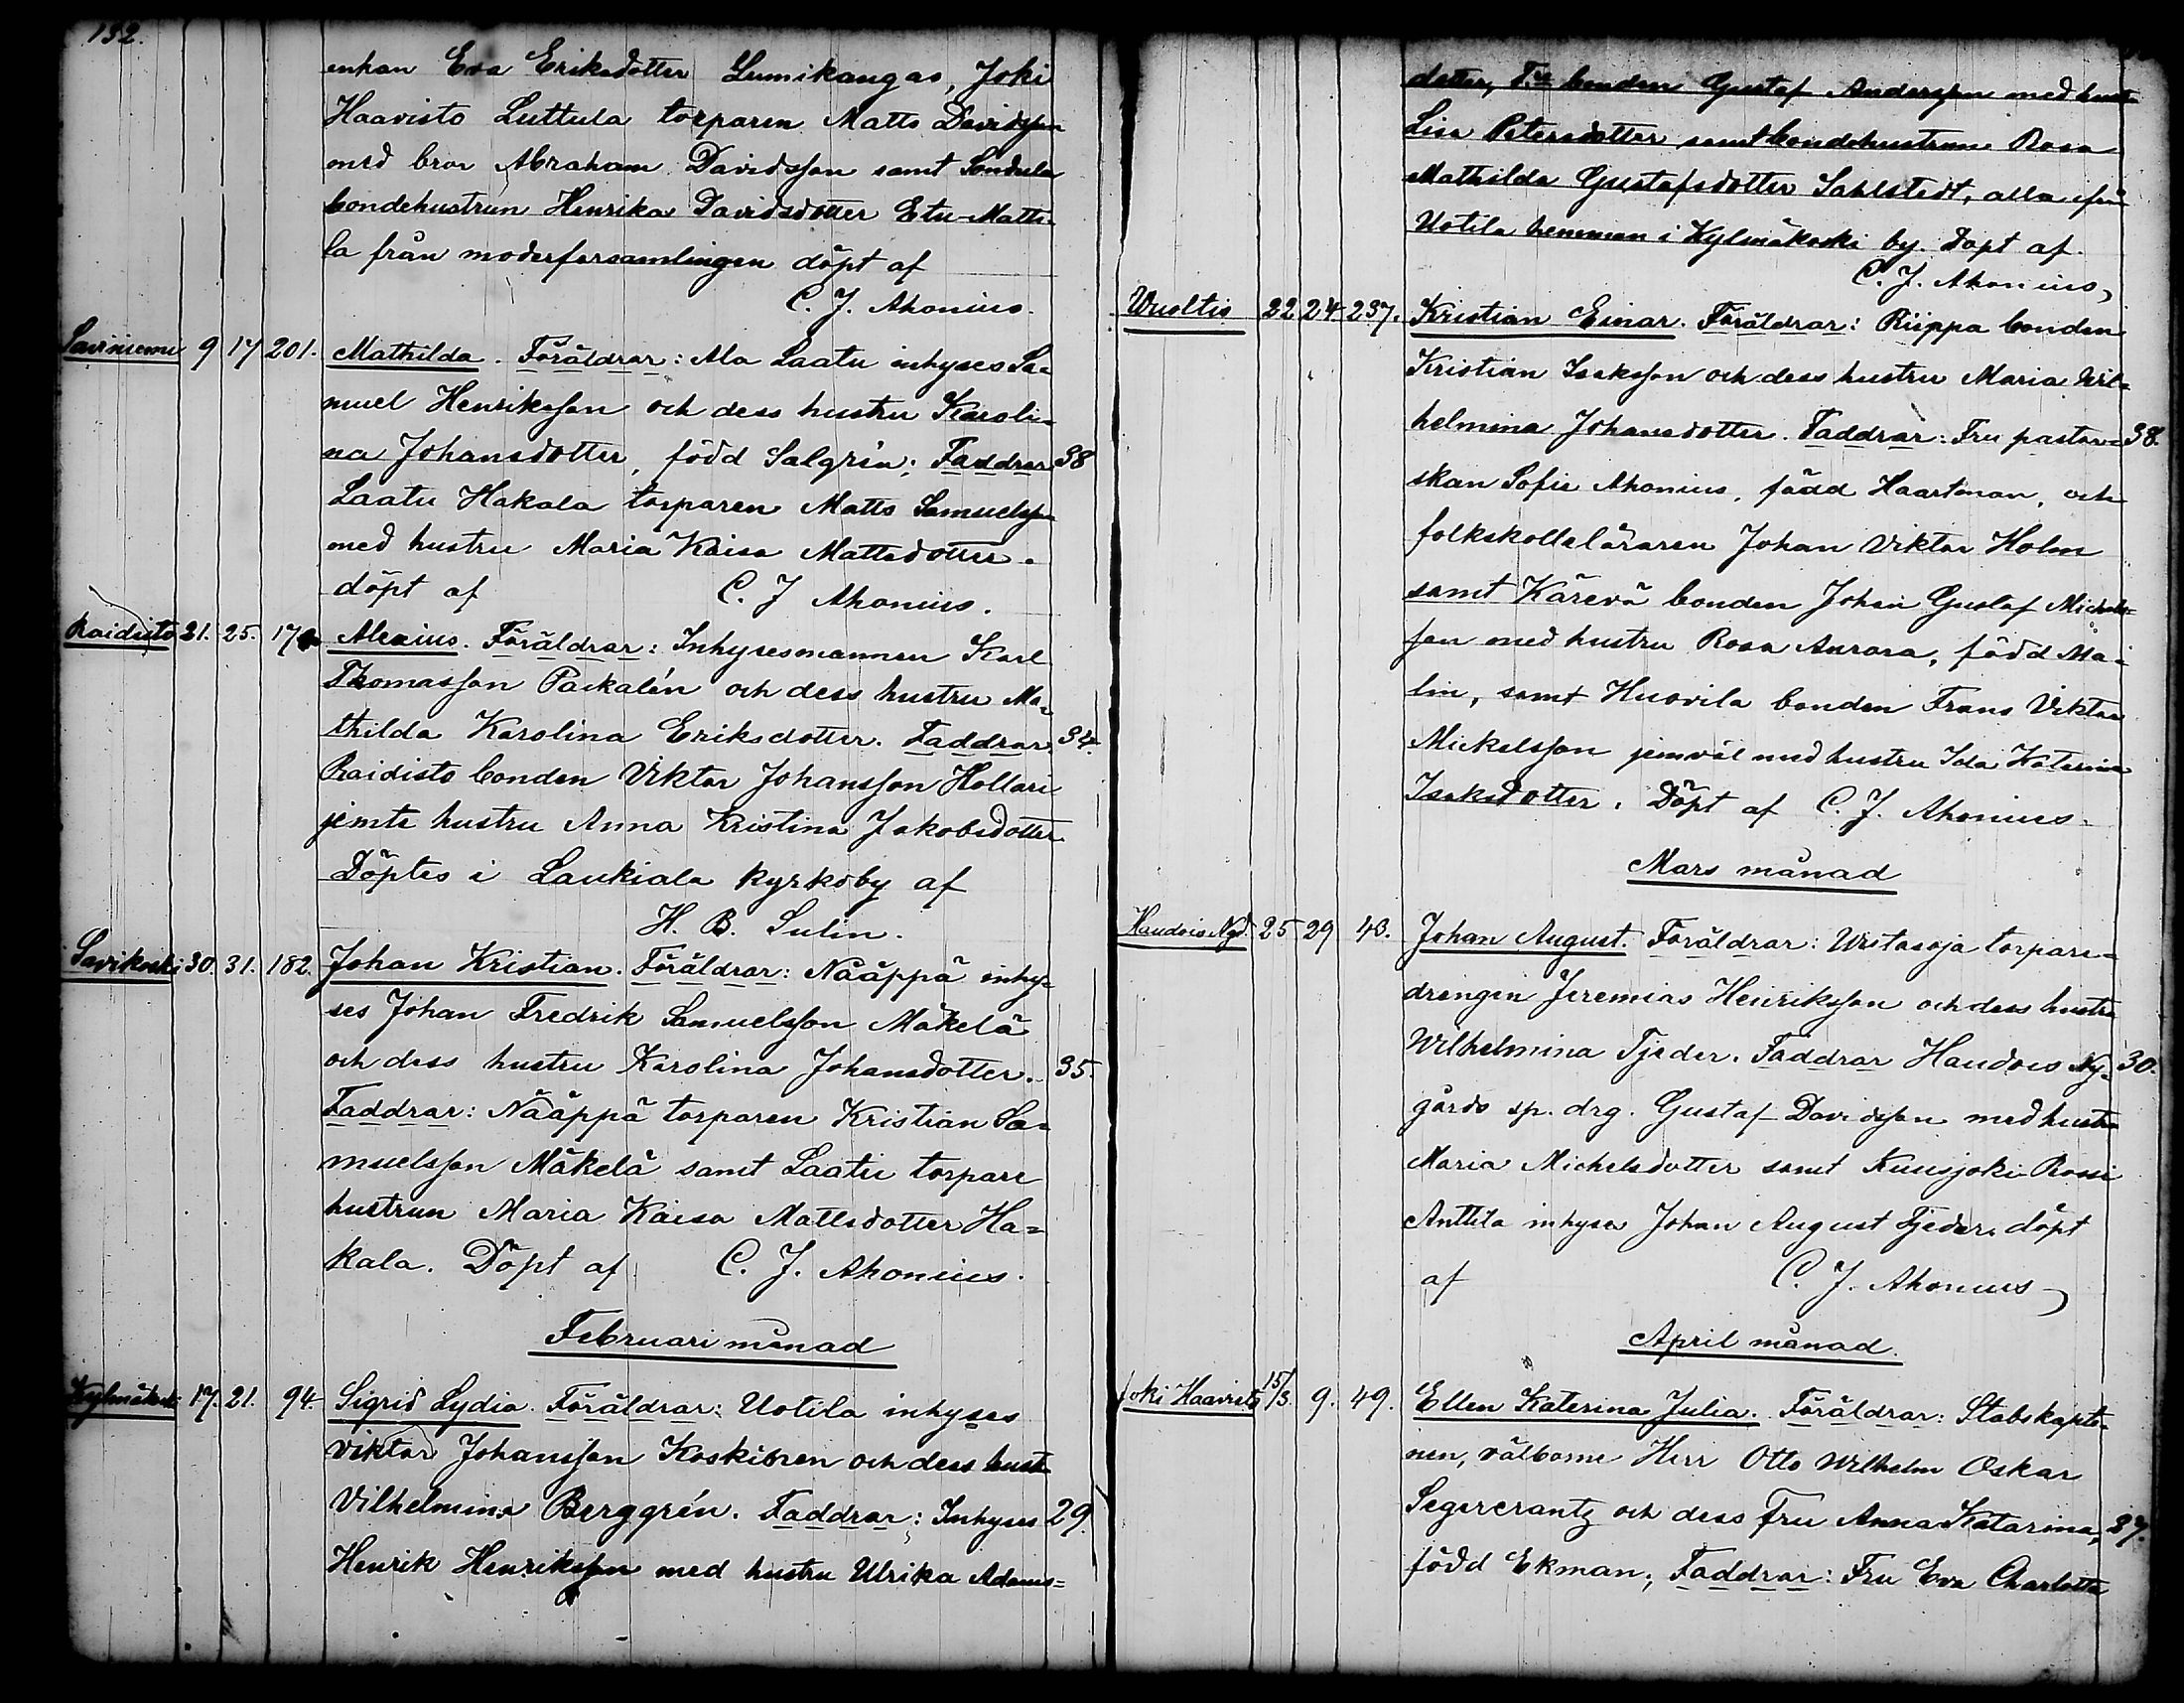 132.
enkan Eva Eriksdotter Lumikangas, Joki
Haavisto Luttula torparen Matts Davidsson
med bror Abraham Davidsson samt
bondehustrun Henrika Davidsdotter Etu-Matti-
la från moderforsamlingen döpt af
C. J. Ahonius.
Saviniemi 9 17 201. Mathilda. Föräldrar: Ala Laatu inhyses Sa=
muel Henriksson och dess hustru Karoli=
na Johansdotter, född Salgrén; Faddrar 38
Laatu Hakala torparen Matts Samuelsson
med hustru Maria Kaisa Mattsdotter.
döpt af C. J Ahonius.
Raidisto 21. 25. Alexius. Föräldrar: Inhysesmannen Karl
Thomasson Paikalén och dess hustru Ma=
thilda Karolina Eriksdotter. Faddrar 34.
Raidisto bonden Viktor Johansson Hollari
jemte hustru Anna Kristina Jakobsdotter
Döptes i Laukiala kyrkoby af
H. B. Sulin.
Savikoski 30. 31. 182. Johan Kristian. Föräldrar: Nääppä inhy=
ses Johan Fredrik Samuelsson Mäkelä
och dess hustru Karolina Johansdotter. 35.
Faddrar: Nääppä torparen Kristian Sa=
muelsson Mäkelä samt Laatu torpare
hustrun Maria Kaisa Mattsdotter Ha=
kala. Döpt af C. J. Ahonius.
Februari månad
Kylmäkoski 17. 21. 94. Sigrid Lydia. Föräldrar: Uotila inhyses
Viktor Johansson Koskinen och dess hustr
Vilhelmina Berggrén. Faddrar: Inhyses 29.
Henrik Henriksson med hustru Ulrika Adams=
dotter, bonden Gustaf Andersson med hustr
Lisa Petersdotter samt bondehustrun Rosa
Mathilda Gustafsdotter Sahlstedt, alla ifrån
Uotila hemman i Kylmäkoski by. Döpt af
C. J. Ahonius,
Wuoltis 22 24. 237. Kristian Einar. Föräldrar: Riippa bonden
Kristian Isaksson och dess hustru Maria Wil=
helmina Johansdotter. Faddrar: Fru pastor= 38.
skan Sofie Ahonius, född Haartman, och
folkskolleläraren Johan Viktor Holm
samt Kärevä bonden Johan Gustaf Mickels=
son med hustru Rosa Aurora, född Ma=
lin, samt Huovila bonden Frans Viktor
Mickelsson jemväl med hustru Ida Katerina
Isaksdotter. Döpt af C. J. Ahonius.
Mars månad
Haudois Ngd. 25 29 43. Johan August. Föräldrar: torpare=
drengen Jeremias Henriksson och dess hustru
Wilhelmina Tjeder. Faddrar Haudois Ny= 30.
gårds sp. drg. Gustaf Davidsson med hustru
Maria Michelsdotter samt Kuusjoki Rossi
Anttila inhyses Johan August Tjeder. döpt
af C. J. Ahonius
April månad.
Joki Haavisto 15/3. 9. 49. Ellen Katerina Julia. Föräldrar: Stabskapte-
nen, välborne Herr Otto Wilhelm Oskar
Segercrantz och dess Fru Anna Katarina, 27.
född Ekman; Faddrar: Fru Eva Charlotta